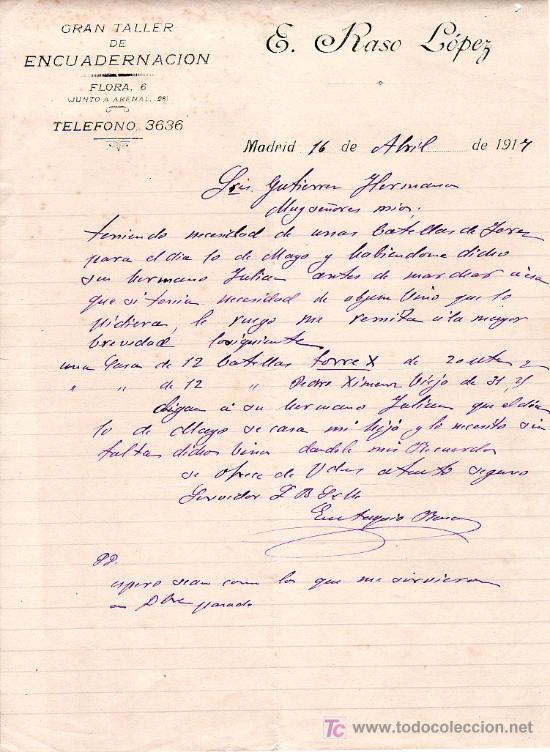 GRAN TALLER
DE
ENCUADERNACION
FLORA, 6
(JUNTO A ARENAL, 28)
TELEFONO, 3636
E. Raso López
Madrid 16 de Abril de 1917
Sres. Gutierrez Hermanos
Muy señores mios;
teniendo necesidad de unas botellas de Jerez
para el dia 10 de Mayo y habiendome dicho
su hermano Julian antes de marchar a esa
que si tenia necesidad de algun vino que lo
pidiera, le ruego me remita a la mayor
brevedad lo siguiente
una Caja de 12 botellas torre X de
" " de 12 " Pedro Ximenez Viejo de
digan á su hermano Julian que el dia
10 de Mayo se casa mi hijo y lo necesito sin
falta dicho vino dandole mis Recuerdos
se ofrece de Vdes atento seguro
Servidor
Eustaquio Raso
PD.
espero sean como los que me sirvieron
en Dbre pasado
todocoleccion
www.todocoleccion.net